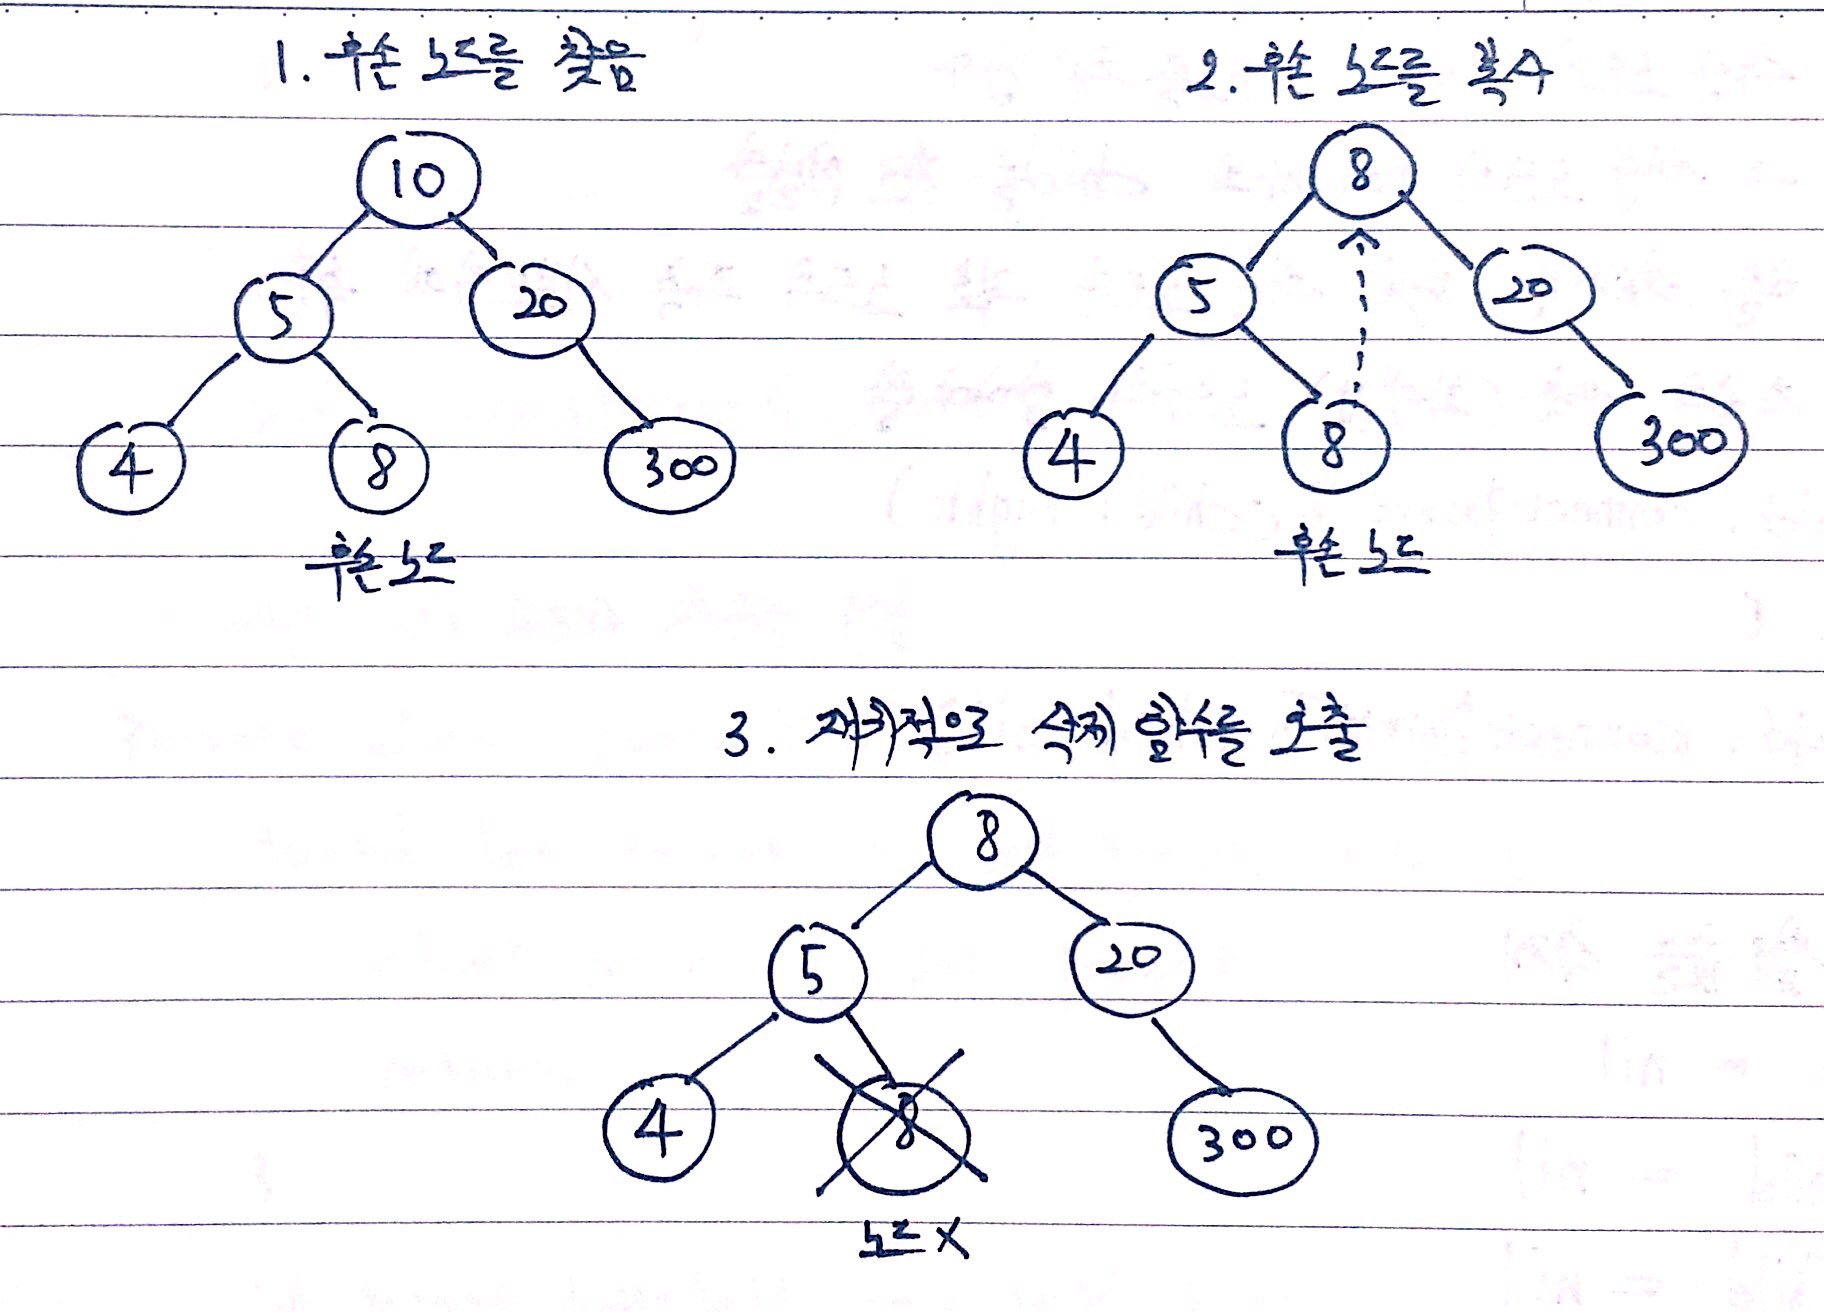 1. 후손 노드를 찾음
10
5
20
4
8
300
후손 노드
2. 후손 노드를 복사
8
5
20
4
8
300
후손 노드
3. 재귀적으로 삭제 함수를 호출
8
5
20
4
8
300
노드 X